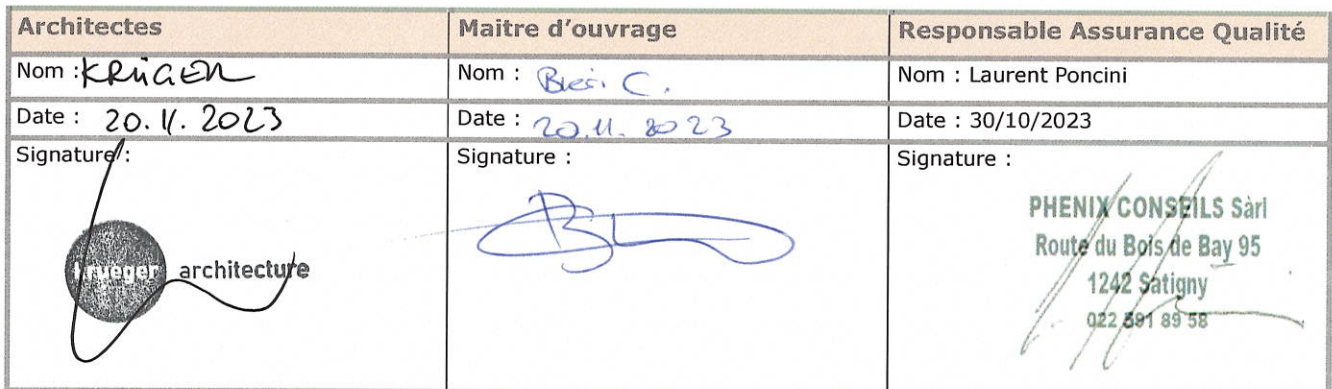 Architectes
Maitre d'ouvrage
Responsable Assurance Qualité
Nom : KRÜGER
Nom : C.
Nom : Laurent Poncini
Date : 20.11.2023
Date : 20.11.2023
Date : 30/10/2023
Signature :
Signature :
Signature :
krueger architecture
PHENIX CONSEILS Sàrl
Route du Bois de Bay 95
1242 Satigny
022 591 89 58